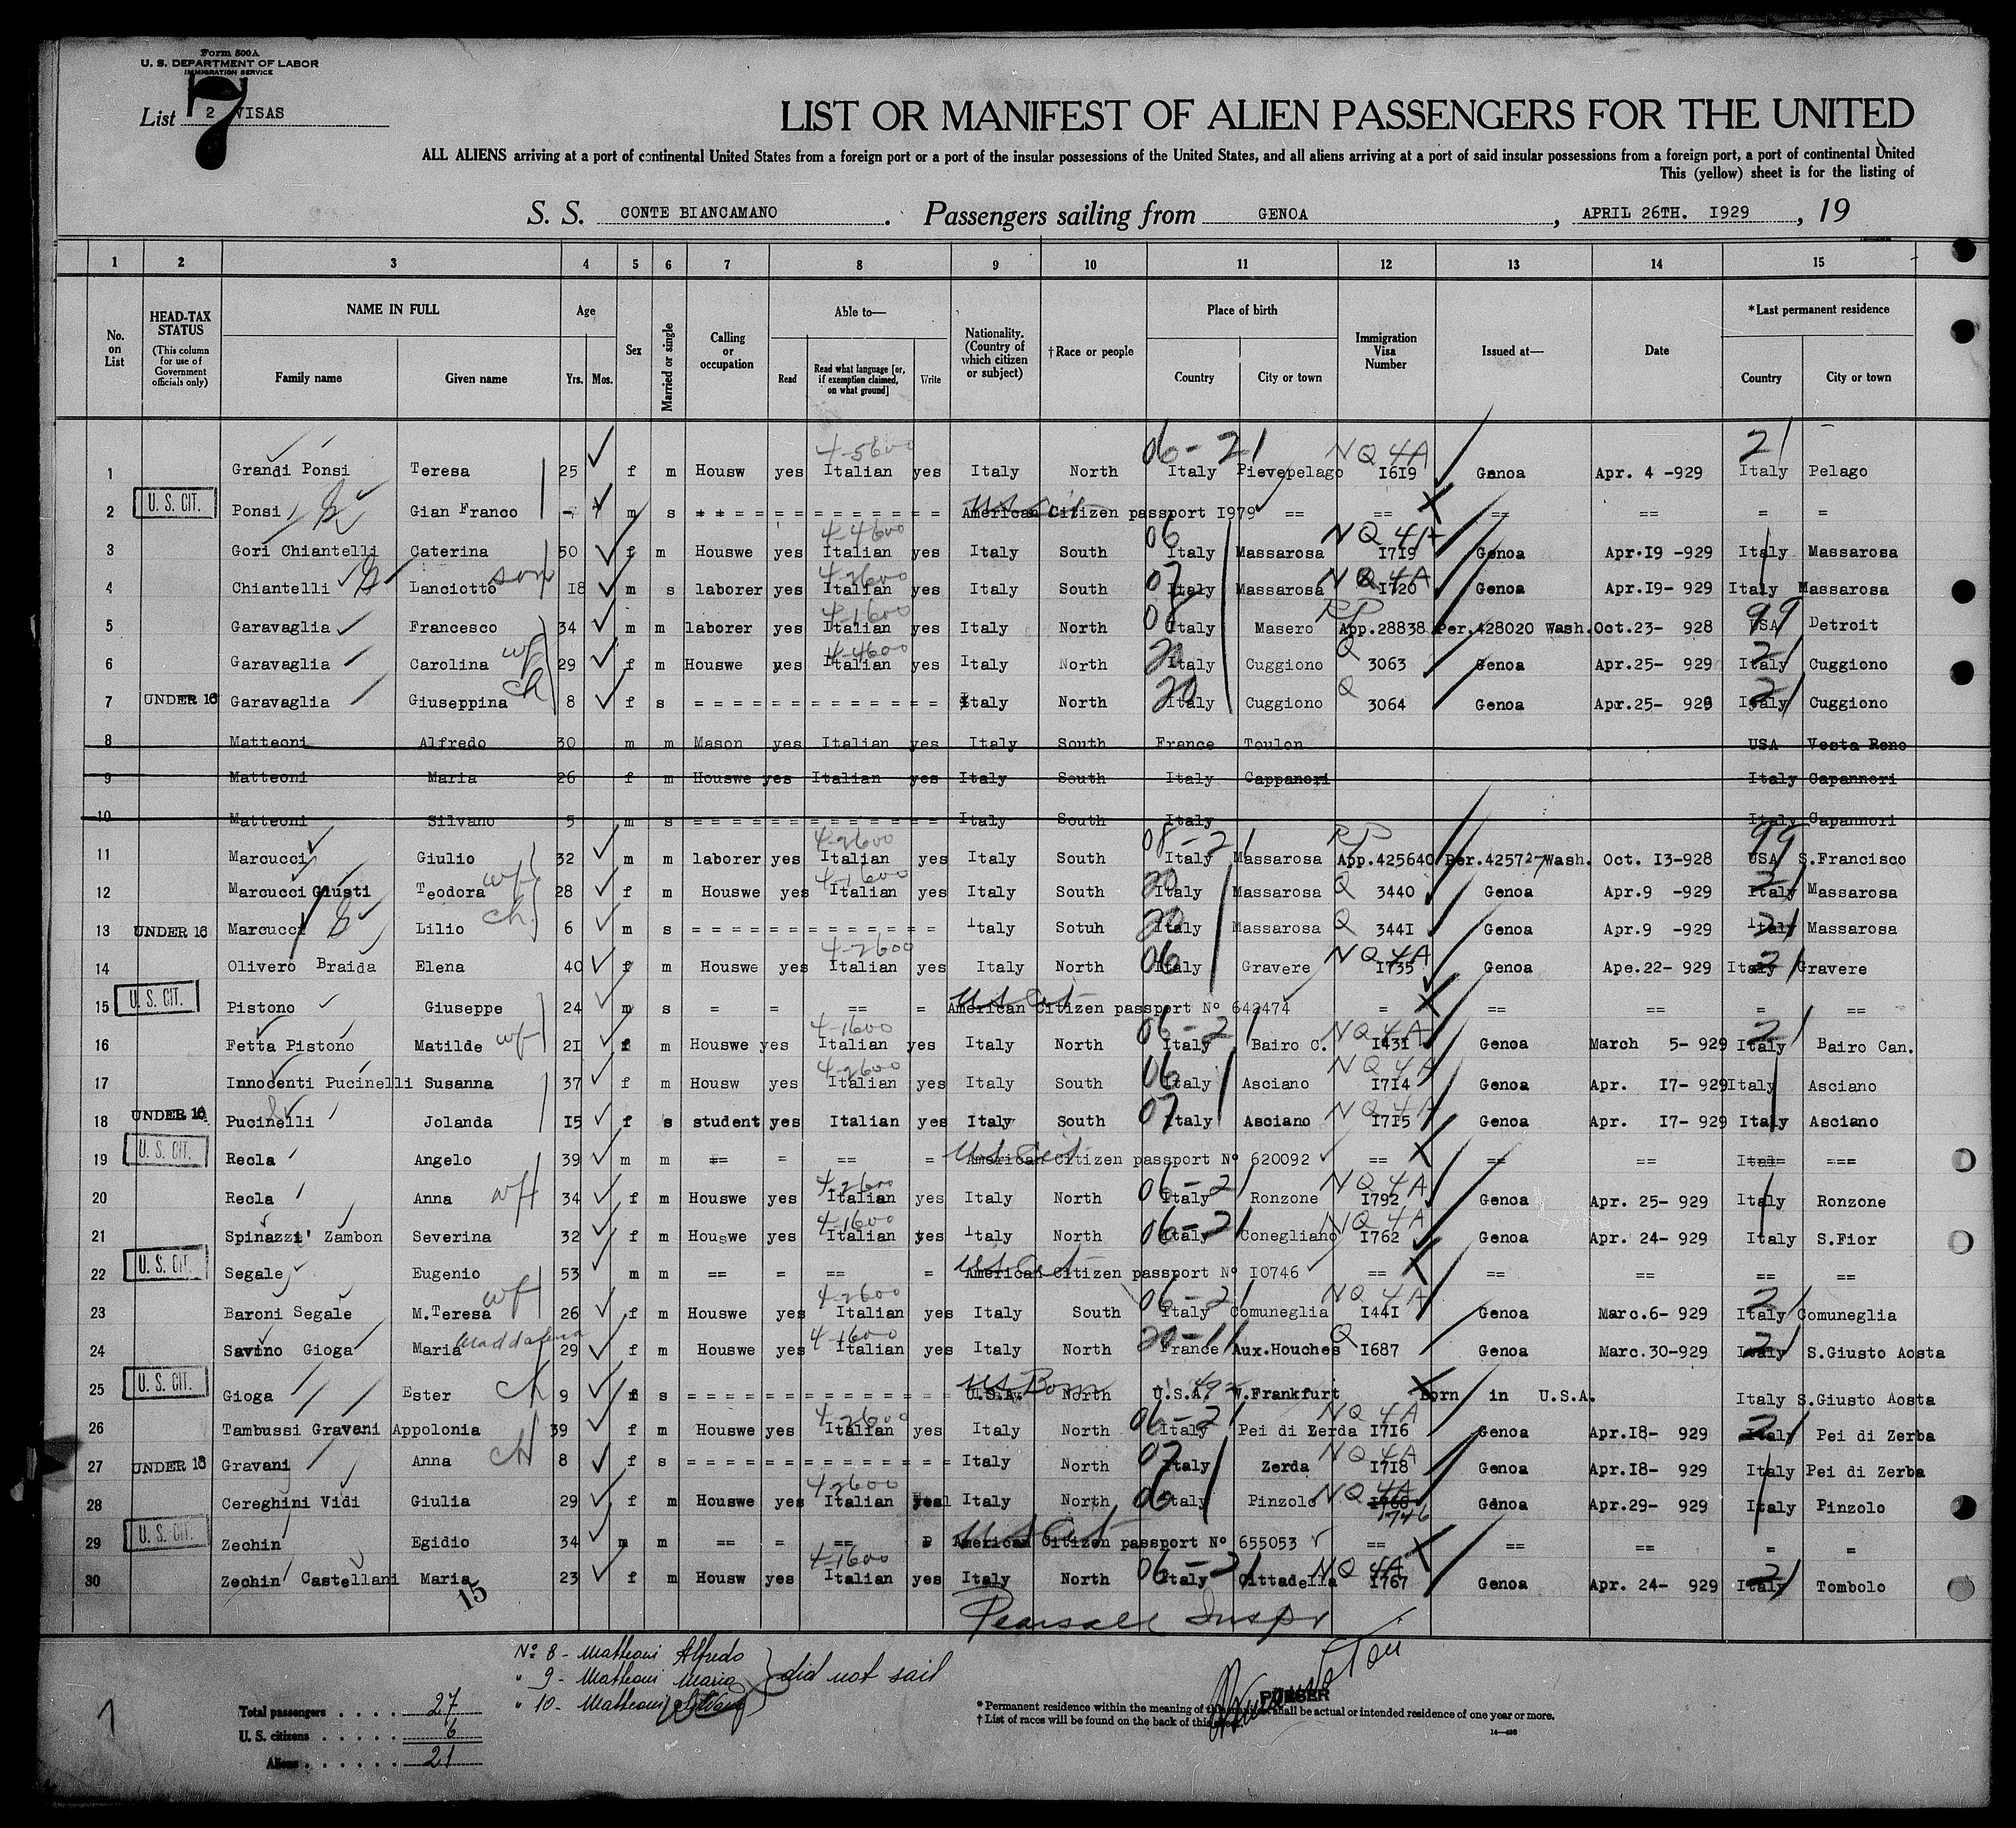 Form 500 A
U. S. DEPARTMENT OF LABOR
IMMIGRATION SERVICE
7
List 2 VISAS
LIST OR MANIFEST OF ALIEN PASSENGERS FOR THE UNITED
ALL ALIENS arriving at a port of continental United States from a foreign port or a port of the insular possessions of the United States, and all aliens arriving at a port of said insular possessions from a foreign port, a port of continental United
This (yellow) sheet is for the listing of
S. S. CONTE BIANCAMANO. Passengers sailing from GENOA, APRIL 26TH. I929, 19
1 2 3 4 5 6 7 8 9 10 11 12 13 14 15
No. on List HEAD-TAX STATUS (This column for use of Government officials only) NAME IN FULL Family name Given name Age Yrs. Mos. Sex Married or single Calling or occupation Able to— Read Read what language [or, if exemption claimed, on what ground] Write Nationality. (Country of which citizen or subject) †Race or people Place of birth Country City or town Immigration Visa Number Issued at— Date *Last permanent residence Country City or town
4-5600 06-21 NQ 4A 21
1 Grandi Ponsi Teresa 25 f m Housw yes Italian yes Italy North Italy Pievepelago I6I9 Genoa Apr. 4 -929 Italy Pelago
2 U. S. CIT. Ponsi Gian Franco m s US Cit American Citizen passport I979 == == == == = =
4-4600 06 NQ 4A
3 Gori Chiantelli Caterina 50 f m Houswe yes Italian yes Italy South Italy Massarosa I7I9 Genoa Apr.I9 -929 Italy Massarosa
4-2600 07 NQ 4A
4 Chiantelli Lanciotto son I8 m s laborer yes Italian yes Italy South Italy Massarosa I720 Genoa Apr.I9- 929 Italy Massarosa
4-1600 08 RP 99
5 Garavaglia Francesco 34 m m laborer yes Italian yes Italy North Italy Masero App.28838 Per.428020 Wash. Oct.23- 928 USA Detroit
4-4600 20 Q 21
6 Garavaglia Carolina wf 29 f m Houswe yes Italian yes Italy North Italy Cuggiono 3063 Genoa Apr.25- 929 Italy Cuggiono
20 Q 21
7 UNDER 16 Garavaglia Giuseppina ch 8 f s = = = = = = = = = = = = = Italy North Italy Cuggiono 3064 Genoa Apr.25- 929 Italy Cuggiono
8 Matteoni Alfredo 30 m m Mason yes Italian yes Italy South France Toulon USA Vesta Reno
9 Matteoni Maria 26 f m Houswe yes Italian yes Italy South Italy Cappanori Italy Capannori
10 Matteoni Silvano 5 m s = = = = = = = = = = = = Italy South Italy Italy Capannori
4-2600 08-21 RP 99
11 Marcucci Giulio 32 m m laborer yes Italian yes Italy South Italy Massarosa App.425640 Per.42572-7 Wash. Oct. I3-928 USA S.Francisco
4-1600 20 Q 21
12 Marcucci Giusti Teodora wf 28 f m Houswe yes Italian yes Italy South Italy Massarosa 3440 Genoa Apr.9 -929 Italy Massarosa
20 Q 21
13 UNDER 16 Marcucci Lilio ch. 6 m s = = = = = = = = = = = = = Italy Sotuh Italy Massarosa 344I Genoa Apr.9 -929 Italy Massarosa
4-2600 06 NQ 4A 21
14 Olivero Braida Elena 40 f m Houswe yes Italian yes Italy North Italy Gravere I735 Genoa Ape.22- 929 Italy Gravere
15 U. S. CIT. Pistono Giuseppe 24 m s = = == = US Cit American Citizen passport Nº 642474 = == == = ==
4-1600 06-21 NQ 4A 21
16 Fetta Pistono Matilde wf 2I f m Houswe yes Italian yes Italy North Italy Bairo C. I43I Genoa March 5- 929 Italy Bairo Can.
4-2600 06 NQ 4A
17 Innocenti Pucinelli Susanna 37 f m Housw yes Italian yes Italy South Italy Asciano I7I4 Genoa Apr. I7- 929 Italy Asciano
07 NQ 4A
18 UNDER 16 Pucinelli Jolanda I5 f s student yes Italian yes Italy South Italy Asciano I7I5 Genoa Apr. I7- 929 Italy Asciano
19 U. S. CIT. Recla Angelo 39 m m == = == = US Cit American Citizen passport Nº 620092 == == == ===
4-2600 06-21 NQ 4A
20 Recla Anna wf 34 f m Houswe yes Italian yes Italy North Italy Ronzone I792 Genoa Apr. 25- 929 Italy Ronzone
4-1600 06-21 NQ 4A
21 Spinazzi Zambon Severina 32 f m Houswe yes Italian yes Italy North Italy Conegliano I762 Genoa Apr. 24- 929 Italy S.Fior
22 U. S. CIT. Segale Eugenio 53 m m == = == = US Cit American Citizen passport Nº I0746 == == == == ==
4-2600 06-21 NQ 4A 21
23 Baroni Segale M.Teresa wf 26 f m Houswe yes Italian yes Italy South Italy Comuneglia I44I Genoa Marc.6- 929 Italy Comuneglia
4-1600 20-11 Q 21
24 Savino Gioga Maria Maddalena 29 f m Houswe yes Italian yes Italy North France Aux.Houches I687 Genoa Marc.30-929 Italy S.Giusto Aosta
25 U. S. CIT. Gioga Ester ch 9 f s = = = = = = = = = = = = = US Born U.S.A. North U.S.A. W.Frankfurt Born in U.S.A. Italy S.Giusto Aosta
4-2600 06-21 NQ 4A 21
26 Tambussi Gravani Appolonia 39 f m Houswe yes Italian yes Italy North Italy Pei di Zerda I7I6 Genoa Apr.I8- 929 Italy Pei di Zerba
07 NQ 4A
27 UNDER 16 Gravani Anna ch 8 f s = = = = = = = = = = = = = Italy North Italy Zerda I7I8 Genoa Apr.I8- 929 Italy Pei di Zerba
4-2600 06 NQ 4A
28 Cereghini Vidi Giulia 29 f m Houswe yes Italian Italy North Italy Pinzolo I760 1746 Genoa Apr.29- 929 Italy Pinzolo
29 U. S. CIT. Zechin Egidio 34 m m == = == US Cit American Citizen passport Nº 655053 == == == = =
4-1600 06-21 NQ 4A 21
30 Zechin Castellani Maria 23 f m Housw yes Italian yes Italy North Italy Cittadella I767 Genoa Apr. 24- 929 Italy Tombolo
15
Pearsall Inspr
Nº 8 - Matteoni Alfredo
" 9 - Matteoni Maria } did not sail
" 10 - Matteoni Silvano
PURSER
Total passengers . . . . 27
U. S. citizens . . . . . 6
Aliens . . . . . . 21
1
* Permanent residence within the meaning of this manifest shall be actual or intended residence of one year or more.
† List of races will be found on the back of this sheet.
14—486